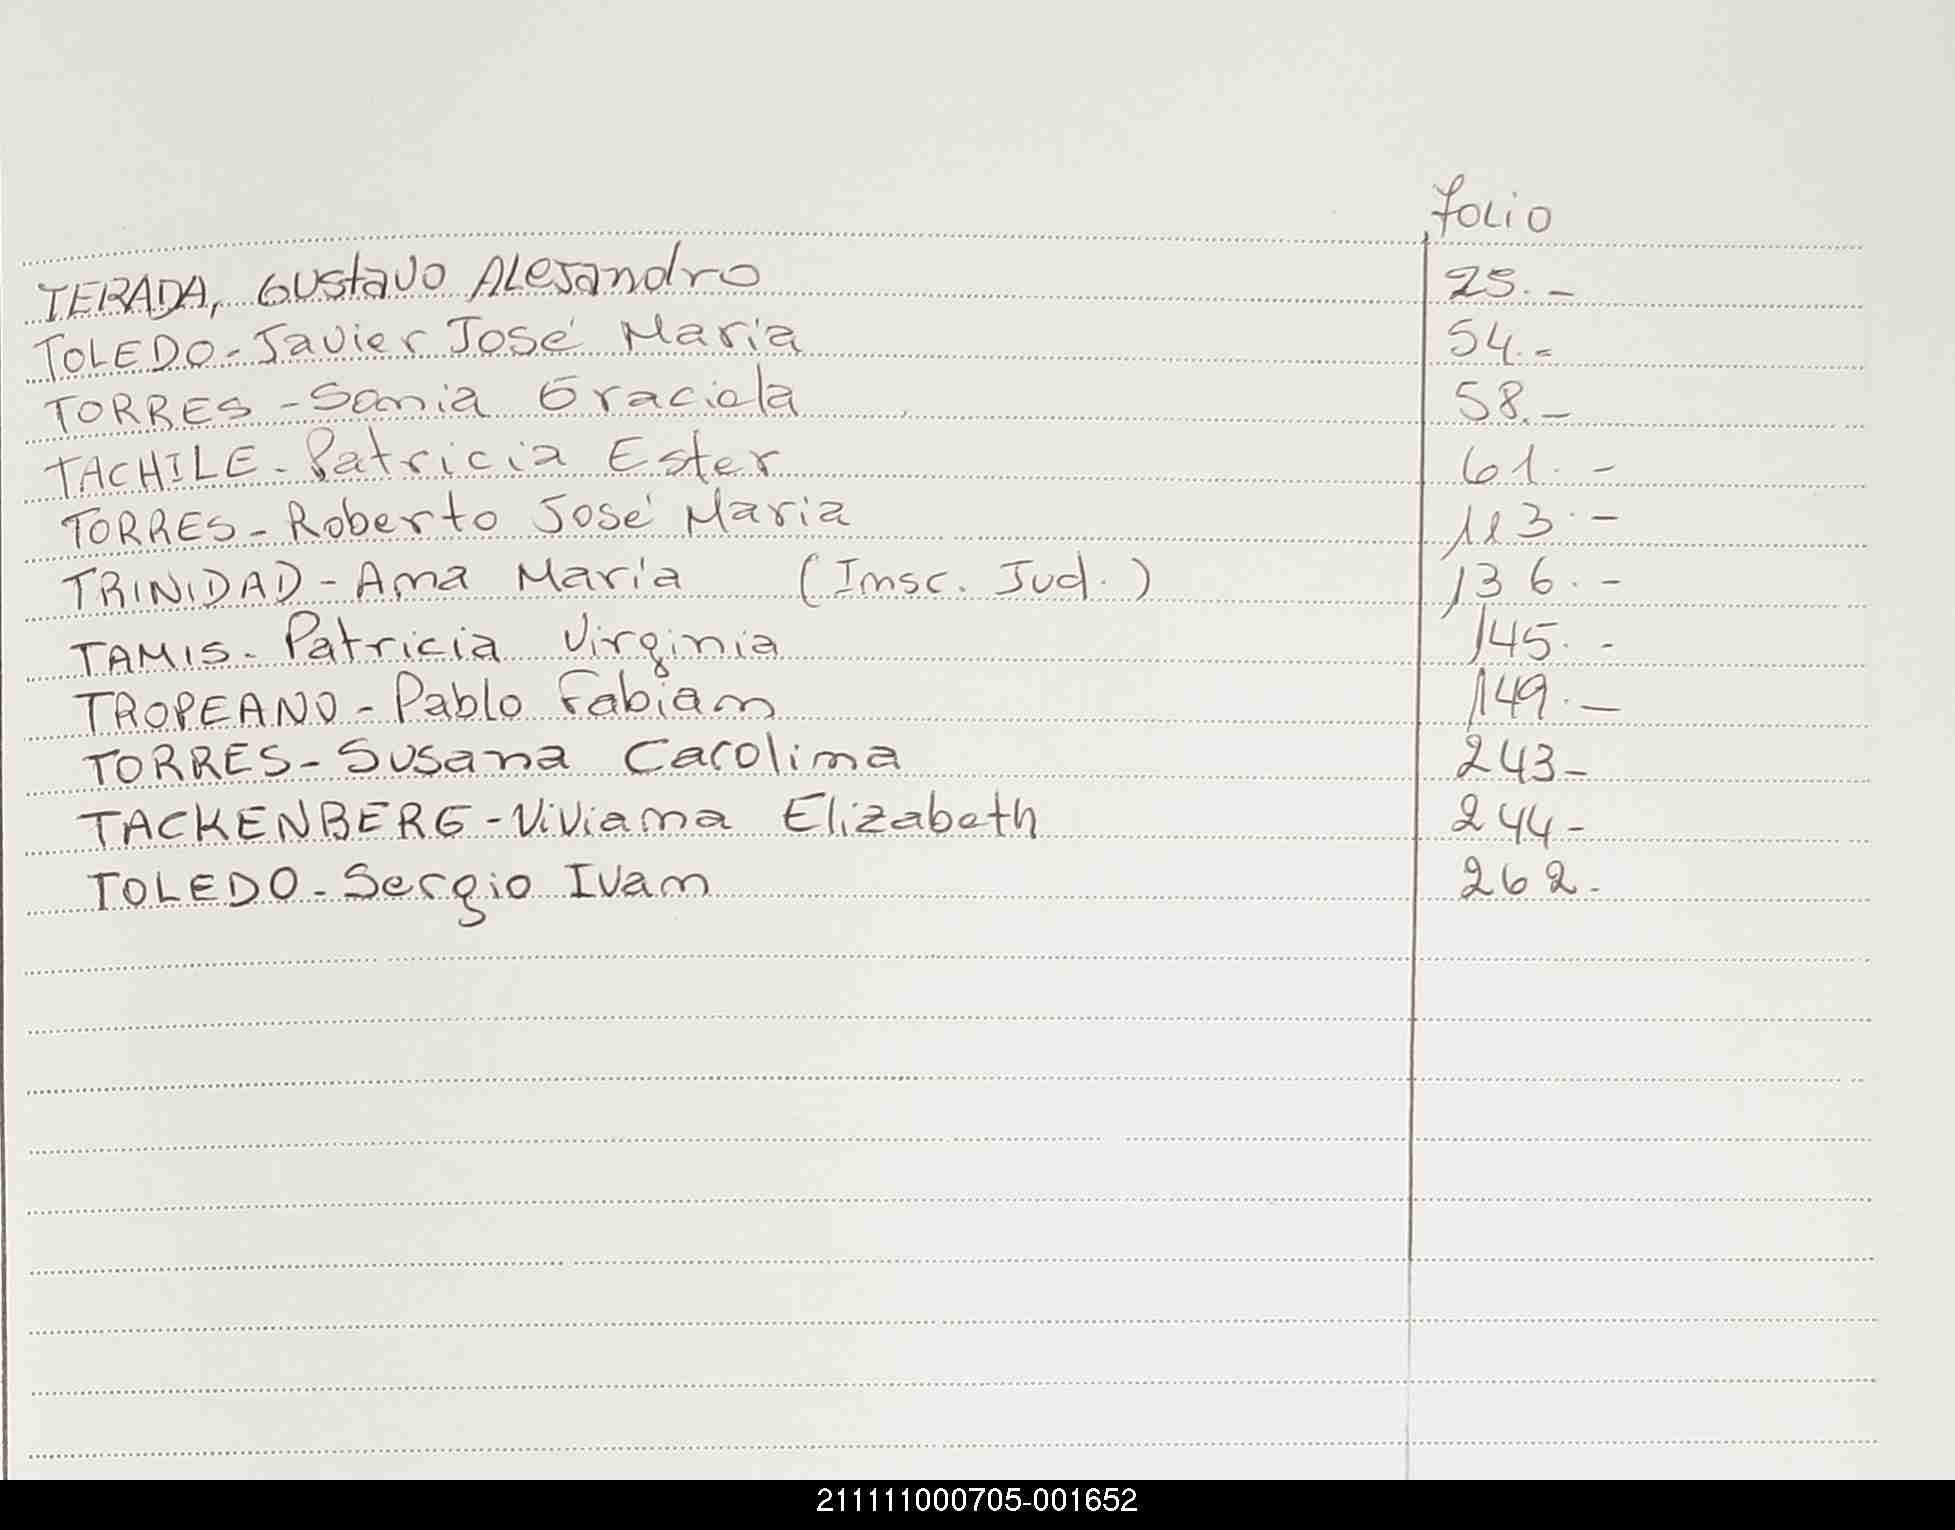 folio
TERADA, Gustavo Alejandro 25.-
TOLEDO-Javier José María 54.-
TORRES-Sonia Graciela 58.-
TACHILE-Patricia Ester 61.-
TORRES-Roberto José María 113.-
TRINIDAD-Ana María (Insc. Jud.) 136.-
TAMIS-Patricia Virginia 145.-
TROPEANO-Pablo Fabian 149.-
TORRES-Susana Carolina 243-
TACKENBERG-Viviana Elizabeth 244-
TOLEDO-Sergio Ivan 262.
211111000705-001652